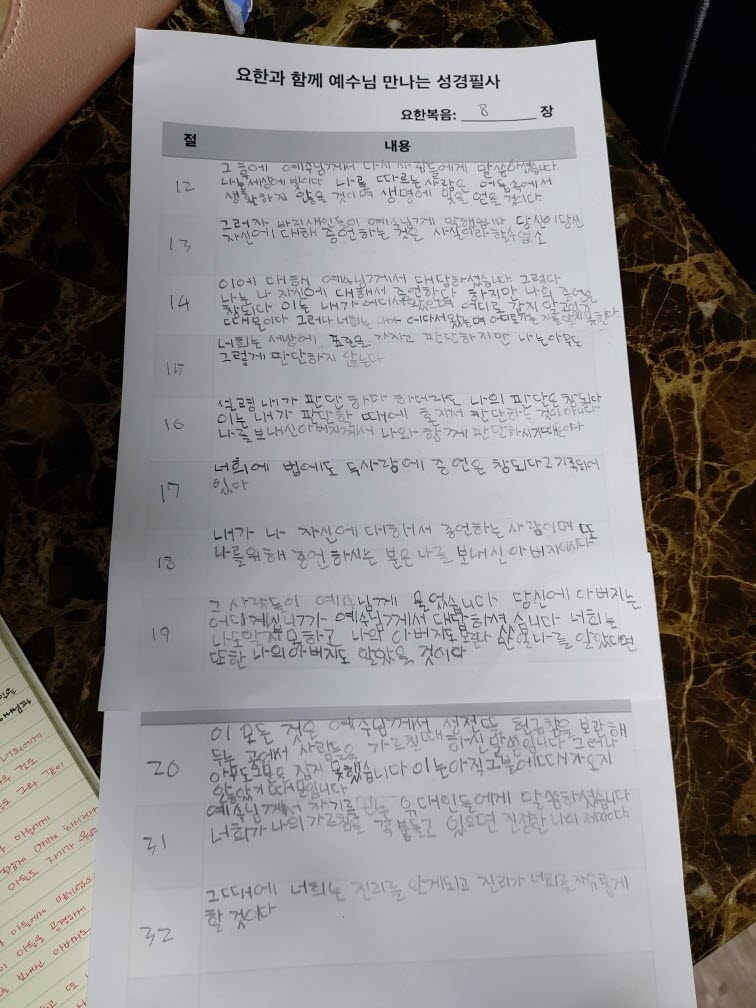 요한과 함께 예수님 만나는 성경필사
요한복음: 8 장
절 내용
12 그 후에 예수님께서 다시 사람들에게 말씀하셨습니다.
나는 세상에 빛이다 나를 따르는 사람은 어둠속에서
생활하지 않을 것이며 생명에 빛을 얻을 것이다
13 그러자 바리새인들이 예수님께 말했습니다 당신이 당신
자신에 대해 증언하는 것은 사실이라 할수없소
14 이에 대해 예수님께서 대답하셨습니다 그렇다
나는 나 자신에 대해서 증언한다 하지만 나의 증언은
참되다 이는 내가 어디서 왔으며 어디로 갈지 알고있기
때문이다 그러나 너희는 내가 어디서 왔는며 어디로가는지를 알지 못한다
15 너희는 세상에 표준을 가지고 판단하지만 나는아무도
그렇게 판단하지 않는다
16 설령 내가 판단 한다 하더라도 나의 판단은 참되다
이는 내가 판단할 때에 혼자서 판단하는 것이 아니라
나를 보내신 아버지께서 나와 함께 판단하시기때문이다
17 너희에 법에도 두사람에 증언은 참되다고 기록되어
있다
18 내가 나 자신에 대해서 증언하는 사람이며 또
나를위해 증언 하시는 분은 나를 보내신 아버지이시다
19 그 사람들이 예수님께 물었습니다 당신에 아버지는
어디계십니까 예수님께서 대답하셨 습니다 너희는
나도알지 못하고 나의 아버지도모른다 만일나를 알았다면
또한 나의아버지도 알았을 것이다
20 이 모든 것은 예수님께서 성전뜰 헌금함을 보관해
두는 곳에서 사람들을 가르칠때 하신 말씀입니다 그러나
아무도 잡지 못했습니다 이는아직 때가오지
않았기 때문입니다
31 예수님께서 자기를 믿는 유대인들에게 말씀하셨습니다
너희가 나의 가르침을 꼭 붙들고 있으면 진정한 나의 제자이다
32 그때에 너희는 진리를 알게되고 진리가 너희를자유롭게
할 것이다